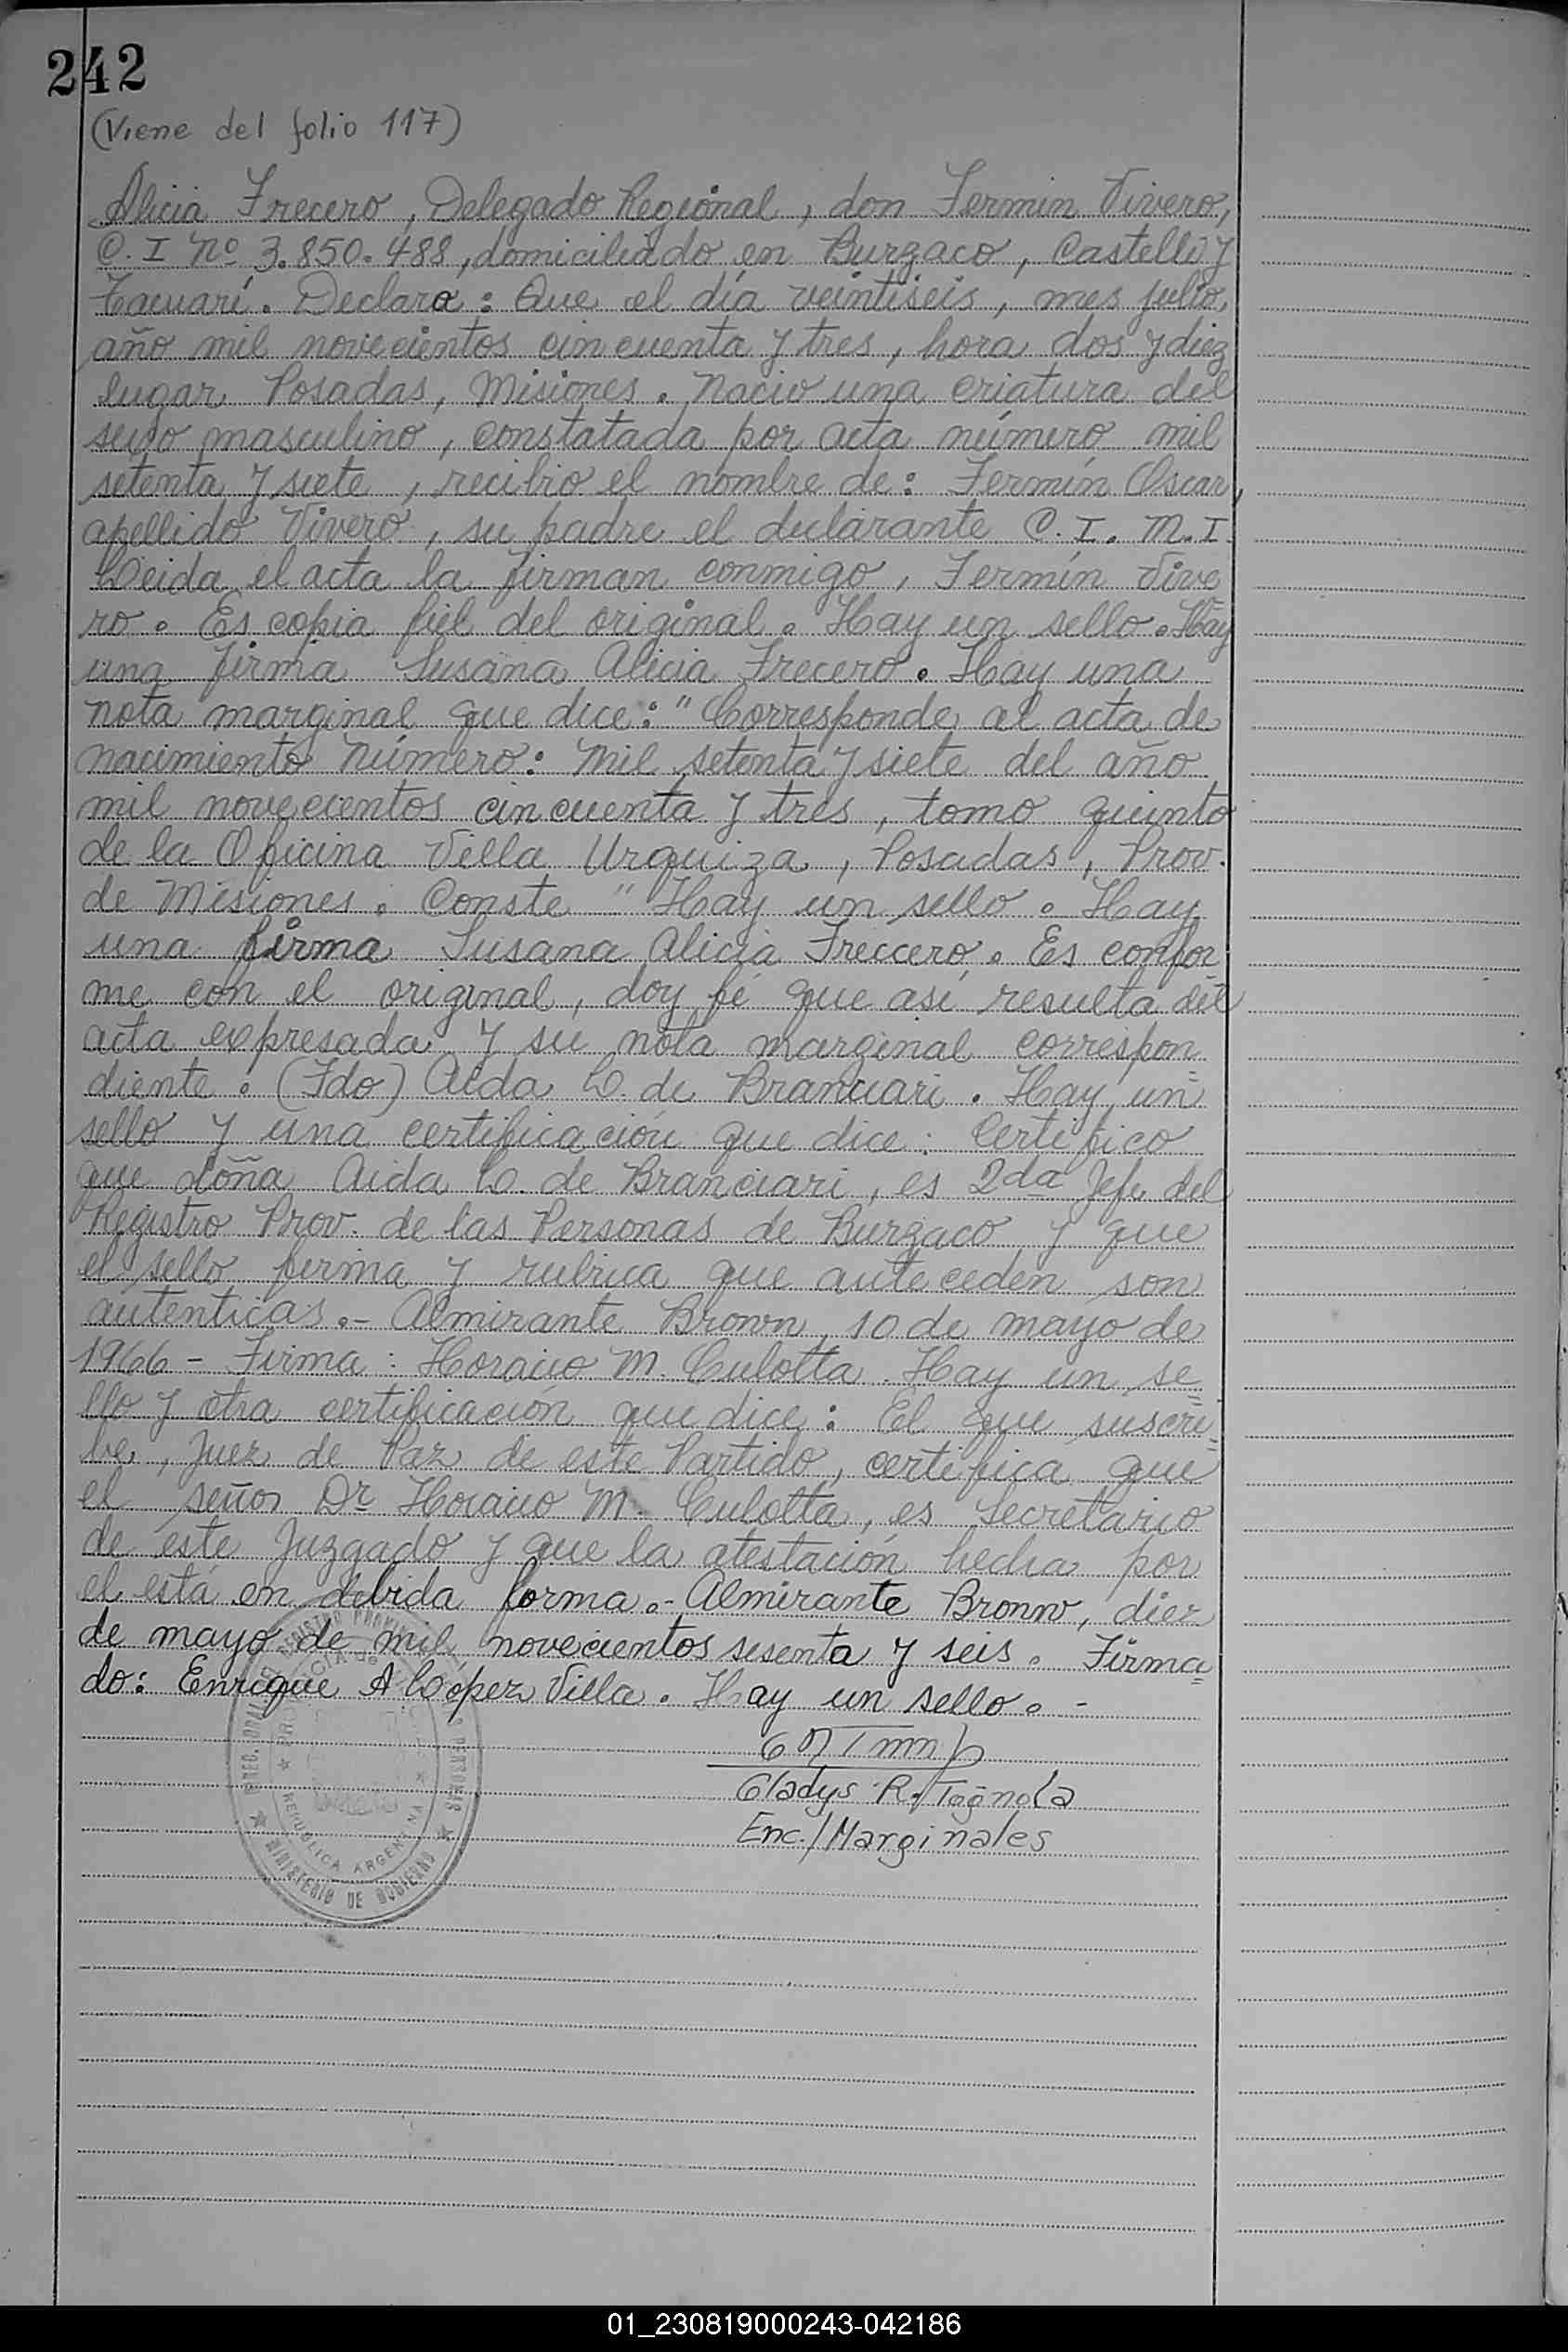 242
(Viene del folio 117)
Alicia Frecero, Delegado Regional, don Fermin Vivero,
C. I Nº 3.850.488, domiciliado en Burzaco, Castelli y
Tacuarí. Declara: Que el día veintiseis, mes julio,
año mil novecientos cincuenta y tres, hora dos y diez
lugar Posadas, Misiones. Nacio una criatura del
sexo masculino, constatada por acta número mil
setenta y siete, recibio el nombre de: Fermín Oscar,
apellido Vivero, su padre el declarante C. I. M. I.
Leida el acta la firman conmigo, Fermín Vive
ro. Es copia fiel del original. Hay un sello. Hay
una firma Susana Alicia Frecero. Hay una
nota marginal que dice: "Corresponde al acta de
nacimiento Número: Mil setenta y siete del año
mil novecientos cincuenta y tres, tomo quinto
de la Oficina Villa Urquiza, Posadas, Prov.
de Misiones. Conste" Hay un sello. Hay
una firma Susana Alicia Freccero. Es confor=
me con el original, doy fé que así resulta del
acta expresada y su nota marginal correspon=
diente. (Fdo) Aida L. de Branciari. Hay un
sello y una certificación que dice: Certifico
que doña Aida L. de Branciari, es 2da Jefe del
Registro Prov. de las Personas de Burzaco, y que
el sello firma y rubrica que anteceden son
autenticas.- Almirante Brown, 10 de mayo de
1966 - Firma: Horacio M. Culotta. Hay un se=
llo y otra certificación que dice: El que suscri=
be, Juez de Paz de este Partido, certifica que
el señor Dr Horacio M. Culotta, es Secretario
de este Juzgado y que la atestación hecha por
el está en debida forma.- Almirante Bronw, diez
de mayo de mil novecientos sesenta y seis. Firma=
do: Enrique A López Villa. Hay un sello. -
Gladys R. Tognola
Enc./Marginales
REPUBLICA ARGENTINA
MINISTERIO DE GOBIERNO
01_230819000243-042186